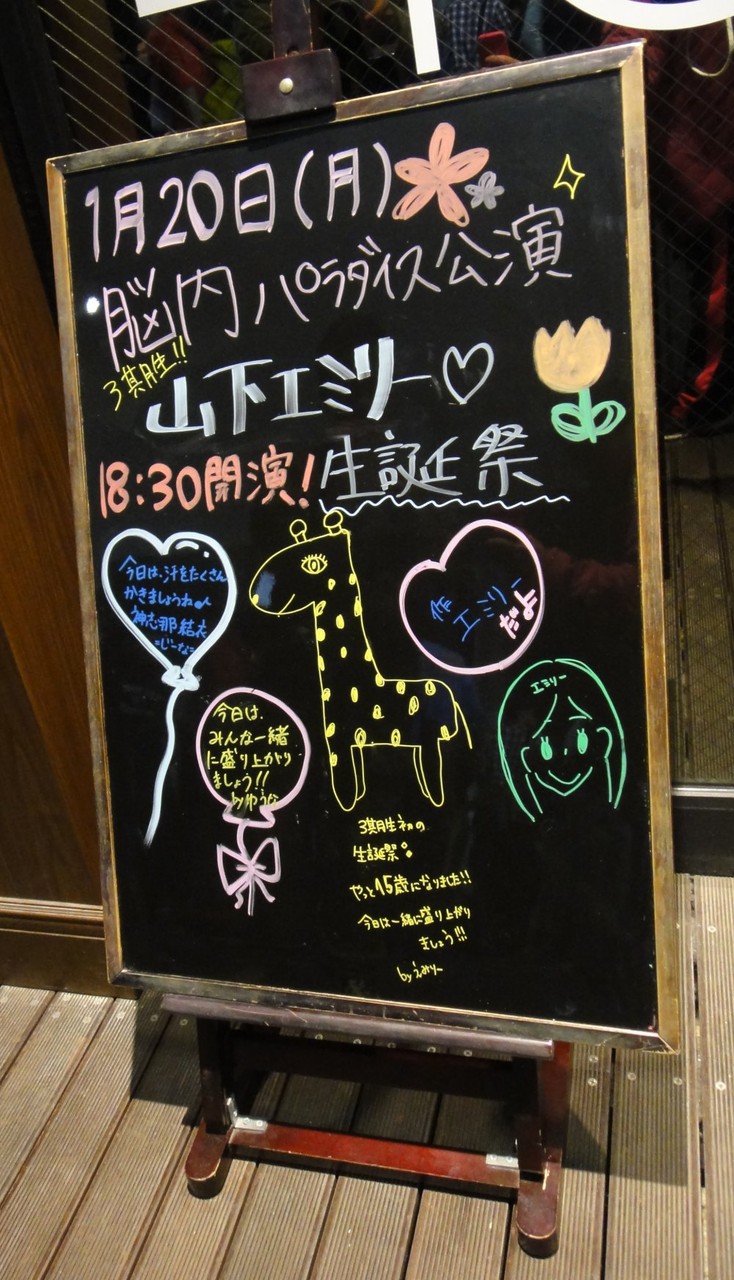 1月20日(月)
脳内パラダイス公演
3期生!!
山下エミリー♡
18:30開演!
生誕祭
今日は、汗をたくさん
かきましょうね♪
神志那結衣
=じーな=
作
エミリー
だよ
エミリー
今日は、
みんな一緒
に盛り上がり
ましょう!!
byゆうな
3期生初の
生誕祭
やっと15歳になりました!!
今日は一緒に盛り上がり
ましょう!!!
byえみりー